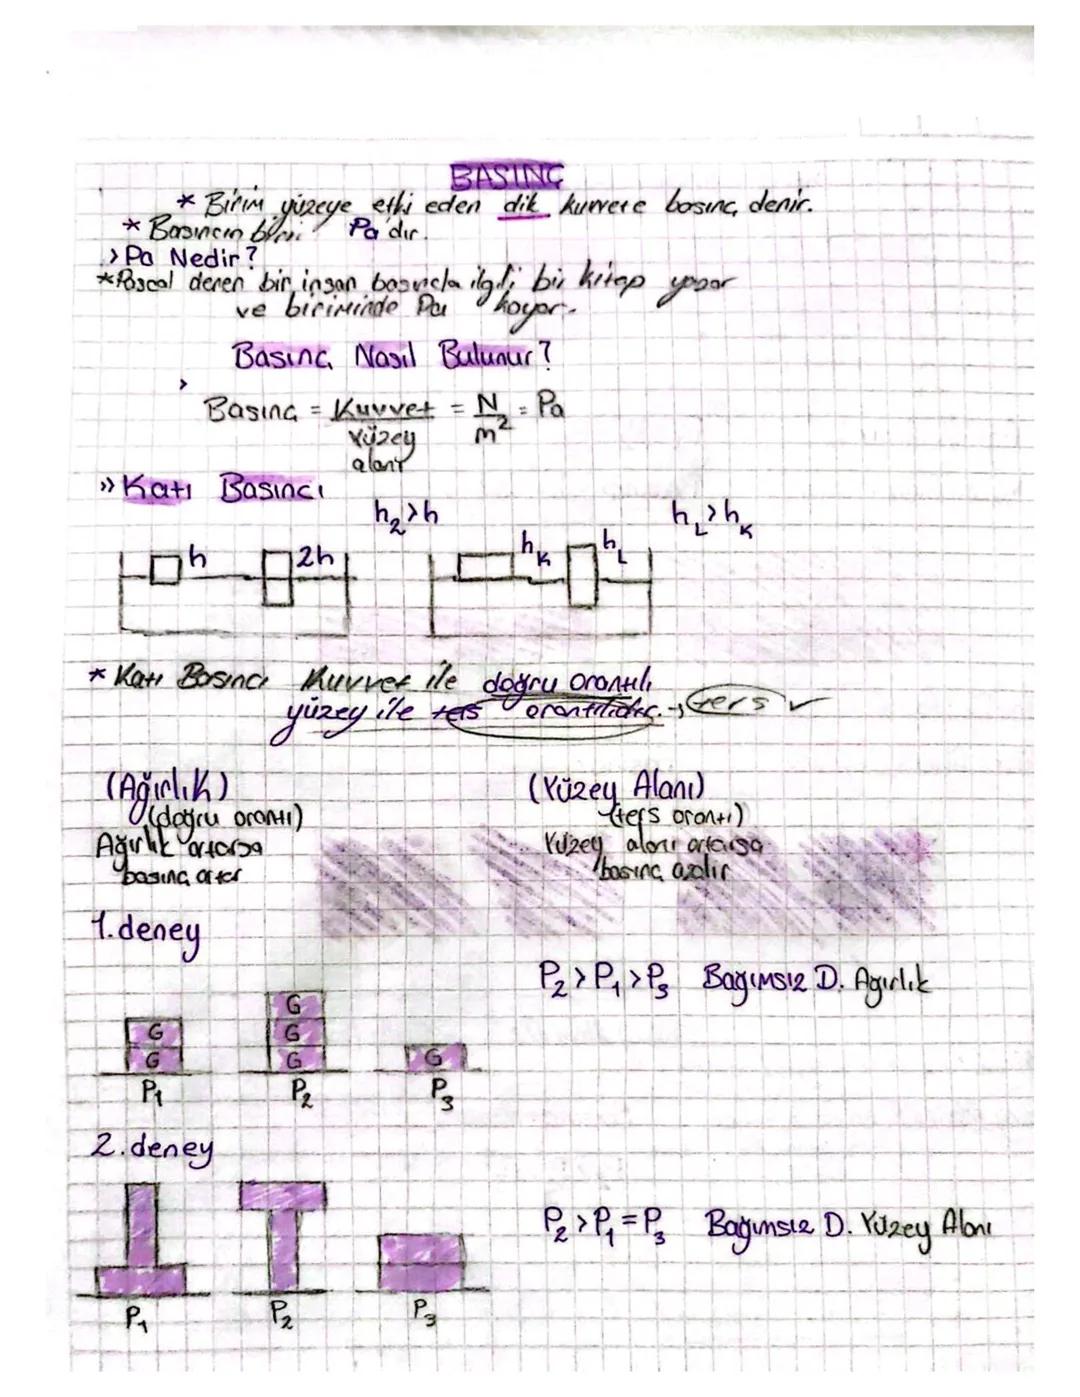 BASINÇ
* Birim yüzeye etki eden dik kuvvete basınç denir.
* Basıncın birimi Pa'dır.
> Pa Nedir?
* Pascal denen bir insan basınçla ilgili bir kitap yazar
ve biriminide Pa koyar.
Basınç Nasıl Bulunur?
>
Basınç = Kuvvet / Yüzey alanı = N / m² = Pa
>> Katı Basıncı
h₂>h h_L>h_K
h 2h h_K h_L
* Katı Basıncı Kuvvet ile doğru orantılı,
yüzey ile ters orantılıdır. → ters ✓
(Ağırlık) (Yüzey Alanı)
(doğru orantı) (ters orantı)
Ağırlık artarsa Yüzey alanı artarsa
basınç artar basınç azalır
1. deney
P₂>P₁>P₃ Bağımsız D. Ağırlık
G
G G
G G G
P₁ P₂ P₃
2. deney
P₂>P₁=P₃ Bağımsız D. Yüzey Alanı
P₁ P₂ P₃